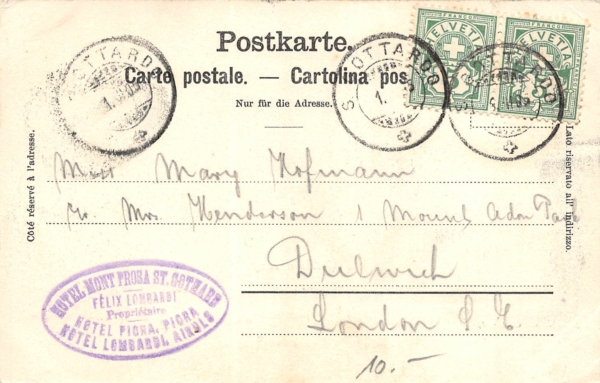 Postkarte.
Carte postale. — Cartolina pos
Nur für die Adresse.
Côté réservé à l'adresse.
Lato riservato all'indirizzo.
FRANCO FRANCO
HELVETIA HELVETIA
S. GOTTARDO
S. GOTTARDO
S. GOTTARDO
Miss Mary Hofmann
Mrs. Henderson 1 Mount Adon Park
Dulwich
London S.E.
10.-
HOTEL MONT PROSA ST. GOTHARD
FÉLIX LOMBARDI
Propriétaire
HOTEL PIORA, PIORA
HOTEL LOMBARDI, AIROLO